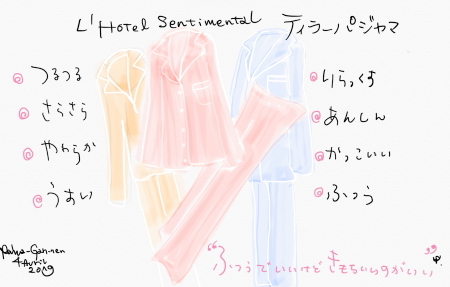 L'Hotel Sentimental
ティラーパジャマ
つるつる
さらさら
やわらか
うすい
りらっくす
あんしん
かっこいい
ふつう
4 Avril
2019
“ふつうでいいけどきもちいいのがいい”